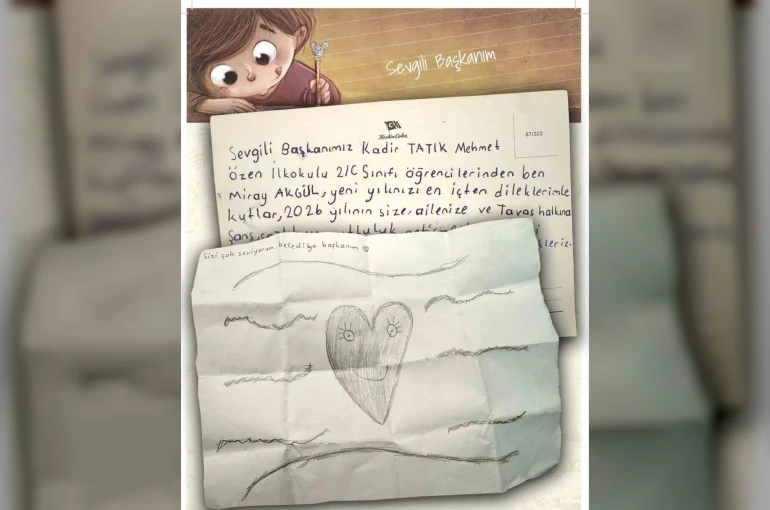 Sevgili Başkanım
87/322
Sevgili Başkanımız Kadir TATIK Mehmet
Özen İlkokulu 2/C Sınıfı öğrencilerinden ben
Miray AKGÜL, yeni yılınızı en içten dileklerimle
kutlar, 2026 yılının size, ailenize ve Tavas halkına
Şans,
Sizi çok seviyorum belediye başkanım